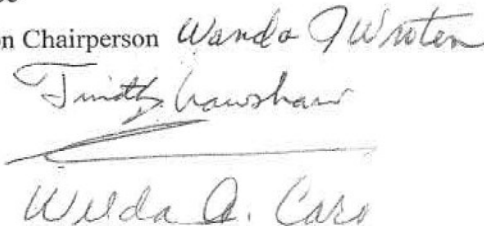 on Chairperson Wanda J Wroten
Timothy Crawshaw
Wilda A. Caro